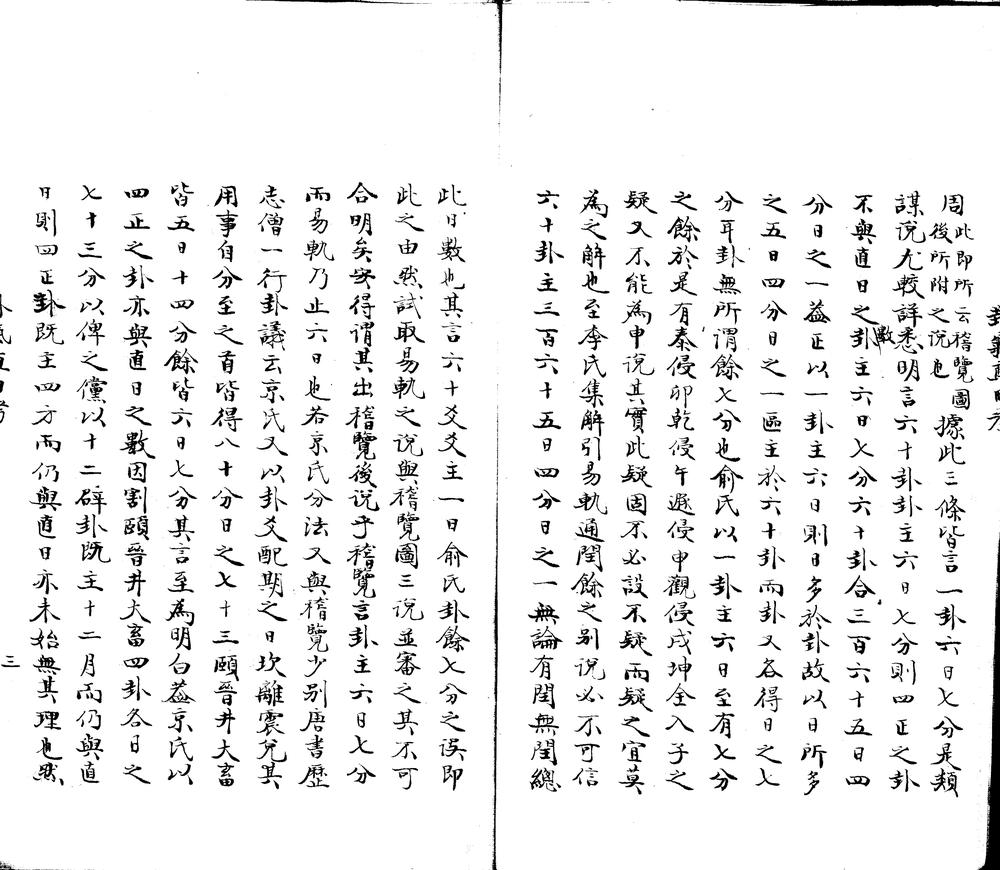 周此即所云稽覽圖後所附之說也據此三條皆言一卦六日七分是類
謀說尤較詳悉明言六十卦卦主六日七分則四正之卦
不與直日之數卦主六日七分六十卦合三百六十五日四
分日之一蓋正以一卦主六日則日多於卦故以日所多
之五日四分日之一區主於六十卦而卦又各得日之七
分耳卦無所謂餘七分也俞氏以一卦主六日至有七分
之餘於是有泰侵卯乾侵午遯侵申觀侵戌坤全入子之
疑又不能為申說其實此疑固不必設不疑而疑之宜莫
為之解也至李氏集解引易軌通閏餘之別說必不可信
六十卦主三百六十五日四分日之一無論有閏無閏總
此日數也其言六十爻爻主一日俞氏卦餘七分之誤即
此之由然試取易軌之說與稽覽圖三說並審之其不可
合明矣安得謂其出稽覽後說乎稽覽言卦主六日七分
而易軌乃止六日也若京氏分法又與稽覽少別唐書歷
志僧一行卦議云京氏又以卦爻配期之日坎離震兌其
用事自分至之首皆得八十分日之七十三頤晉井大畜
皆五日十四分餘皆六日七分其言至為明白蓋京氏以
四正之卦亦與直日之數因割頤晉井大畜四卦各日之
七十三分以俾之儻以十二辟卦既主十二月而仍與直
日則四正卦既主四方而仍與直日亦未始無其理也然
三